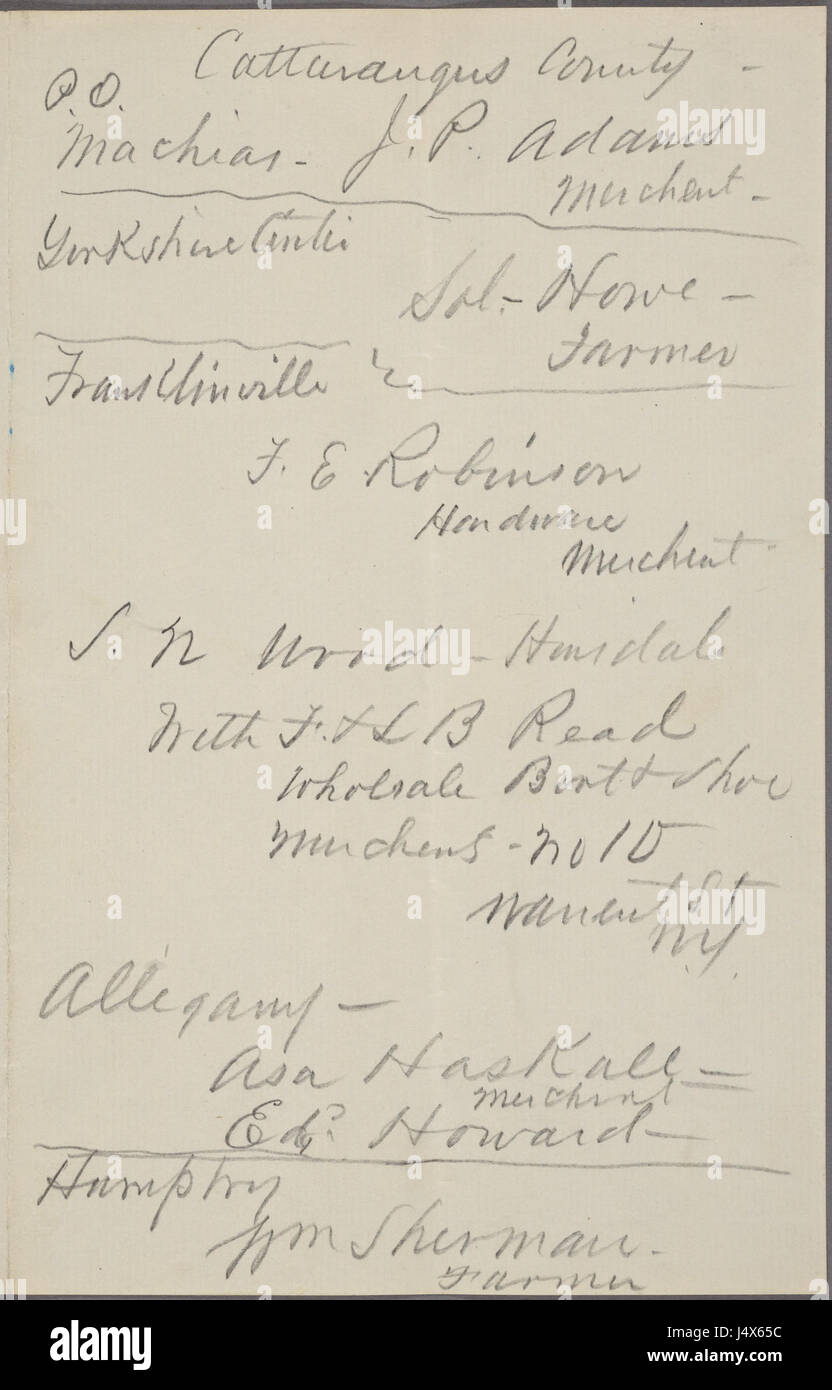 Cattaraugus County -
P.O.
Machias - J. P. Adams
Merchent -
Yorkshire Center
Sol - Howe -
Farmer
Franklinville
F. E. Robinson
Hardware
Merchent
S. N Wood - Hinsdale
With F. & L B Read
Wholesale Boot & Shoe
Merchents - No 15
Warren St
N.Y.
Allegany -
Asa Haskall -
Merchent
Edy. Howard -
Humphry
Wm Sherman -
Farmer
alamy
alamy stock photo
J4X65C
www.alamy.com